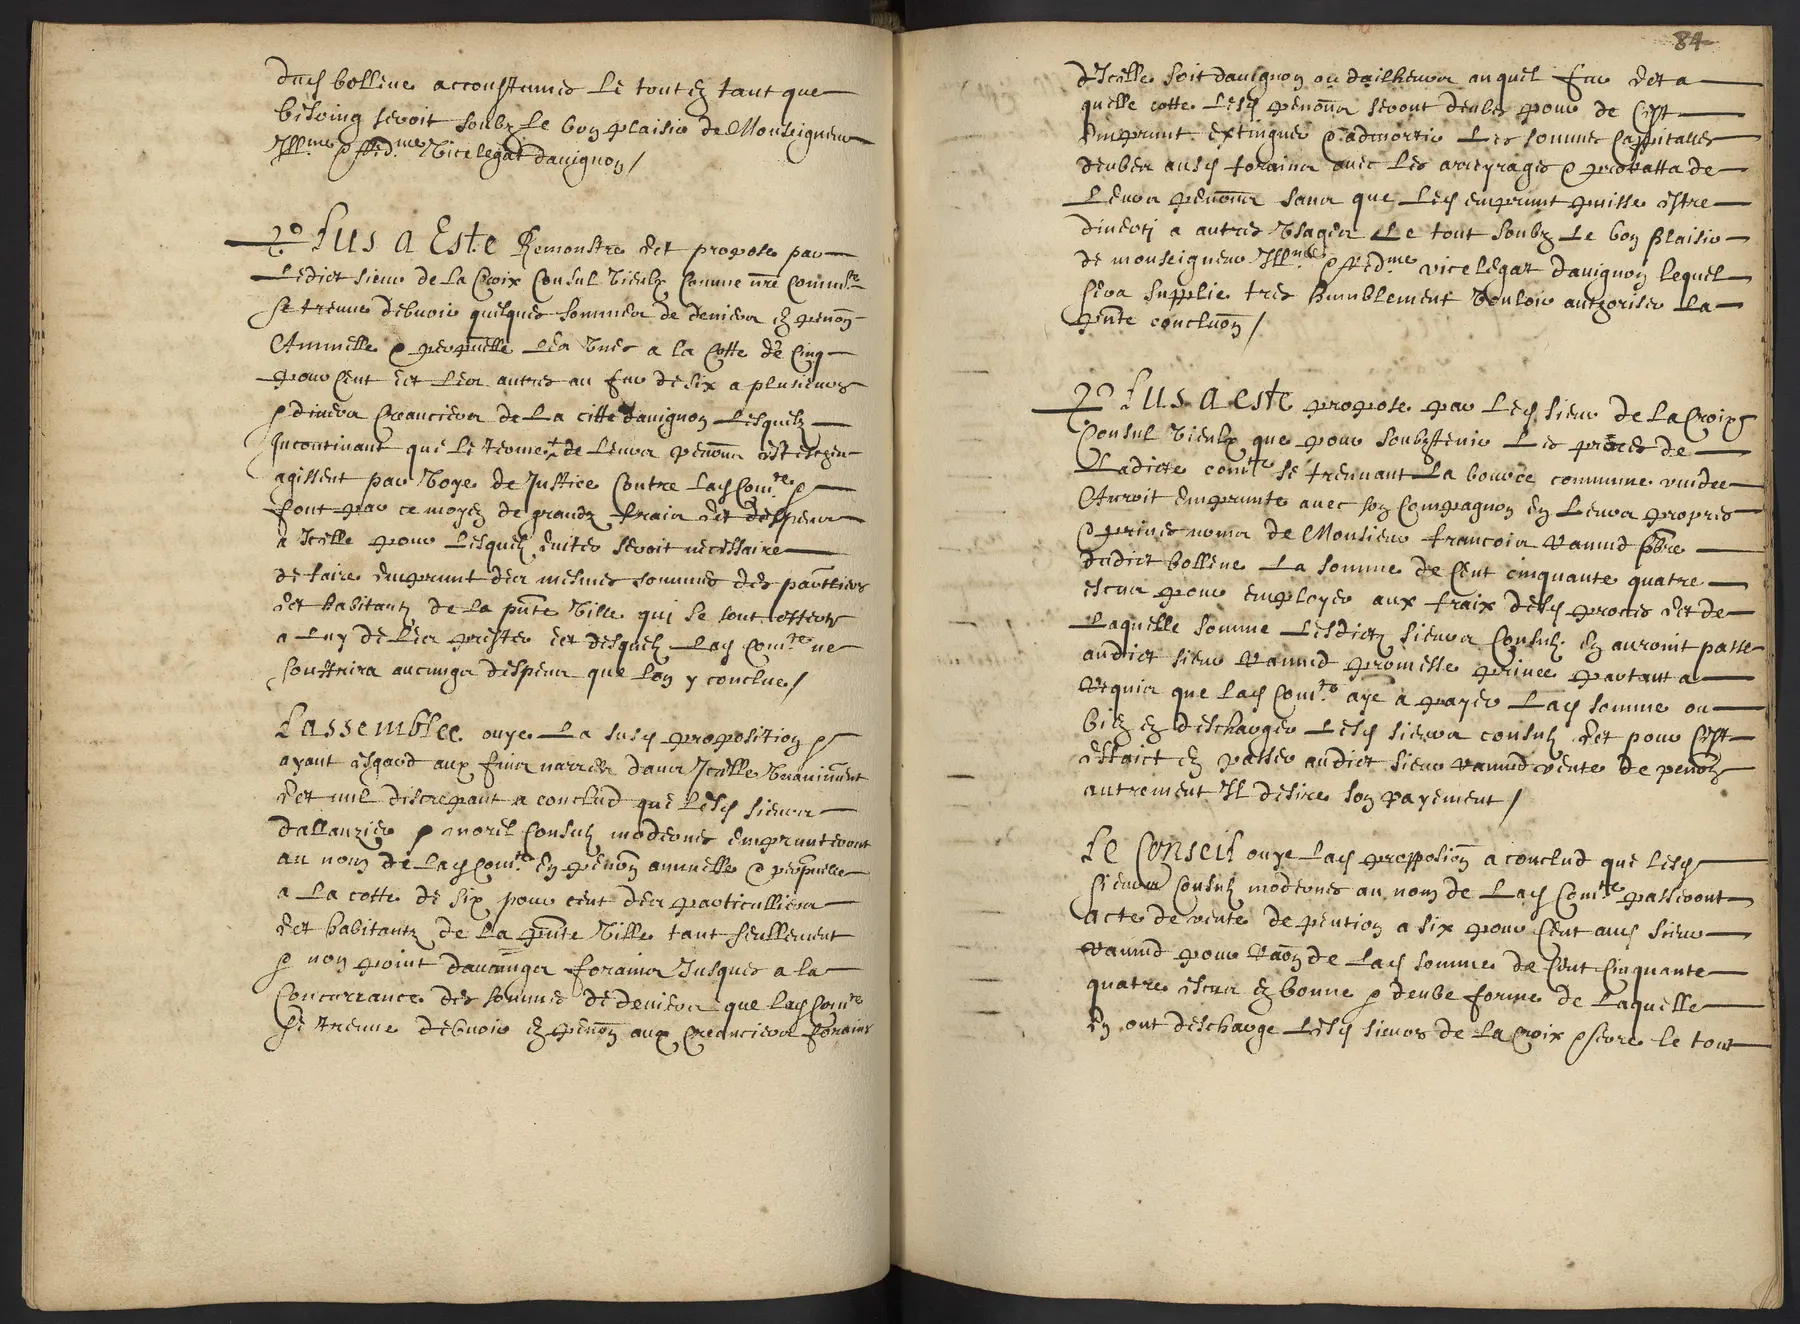 dud bollene accoustumes le tout en tant que
besoing seroit soubz le bon plaisir de Monseigneur
Ill.me & R.d.me Vicelegat davignon /
2° Plus a Este Remonstre Et propose par
Ledict sieur de la Croix Consul Vieulx comme nre Comm.te
se treuve debuoir quelques sommes de deniers en penon
Annuelle & perpuelle les unes a la Cotte de Cinq
pour Cent Et les autres au fur de six a plusieurs
& divers Creanciers de la citte davignon Lesquelz
Incontinant que le terme de leurs penons est escheu
agissent par Voye de Justice Contre lad Com.te &
font par ce moyen de grandz fraix Et despens
a Icelle pour Lesquelz eviter seroit necessaire
de faire emprunt des mesmes sommes des partiers
Et habitantz de la pnte Ville qui se sont offertz
a luy de les prester Et desquelz lad Com.te ne
soustrira aucungs despens que lon y conclue /
Lassemblee ouye la susd proposition &
ayant esgard aux fins narrees dans Icelle Unanimement
Et nul discrepant a conclud que lesd sieurs
dallauzier & morel Consulz modernes emprunteront
au nom de lad Com.te en penon annuelle & perpuelle
a la cotte de six pour cent des particulliers
Et habitantz de la pnte Ville tant seullement
& non point daucungs forains Jusques a la
Concurrance des sommes de deniers que lad Com.te
se treuve debuoir en penon aux creanciers forains
84
dIcelle soit davignon ou dailheurs au quel fur Et a
quelle cotte lesd penons seront deubes pour de Cest
emprunt extingues & admortir les sommes Cappitalles
deubes ausd forains avec les arreyrages & proratta de
leurs penons sans que led emprunt puisse Estre
diverti a autres Usages le tout soubz le bon plaisir
de monseigneur Ill.me & R.d.me vicelegat davignon lequel
sera supplie tres humblement Vouloir authoriser la
pnte concluon /
2° Plus a este propose par led sieur de la Croix
Consul Vieulx que pour soubztenir les proces de
Ladicte com.te se treuvant la bource commune vuidee
Auroit emprunte avec son Compagnon en leurs propres
& prives noms de Monsieur francois pbre
dudict bollene la somme de Cent cinquante quatre
escus pour employer aux fraix desd proces Et de
Laquelle somme lesdictz sieurs Consulz en auroint passe
audict sieur promesse privee partant a
requis que lad Com.te aye a payer lad somme ou
bien en descharger lesd sieurs consulz Et pour Cest
effaict en passer audict sieur vente de penon
autrement Il desire son payement /
Le Conseil ouye lad propposion a conclud que lesd
sieurs Consulz modernes au nom de lad Com.te passeront
acte de vente de pention a six pour Cent aud sieur
pour Raon de lad somme de Cent Cinquante
quatre escus en bonne & deube forme de Laquelle
En ont descharge lesd sieurs de la Croix & serre le tout